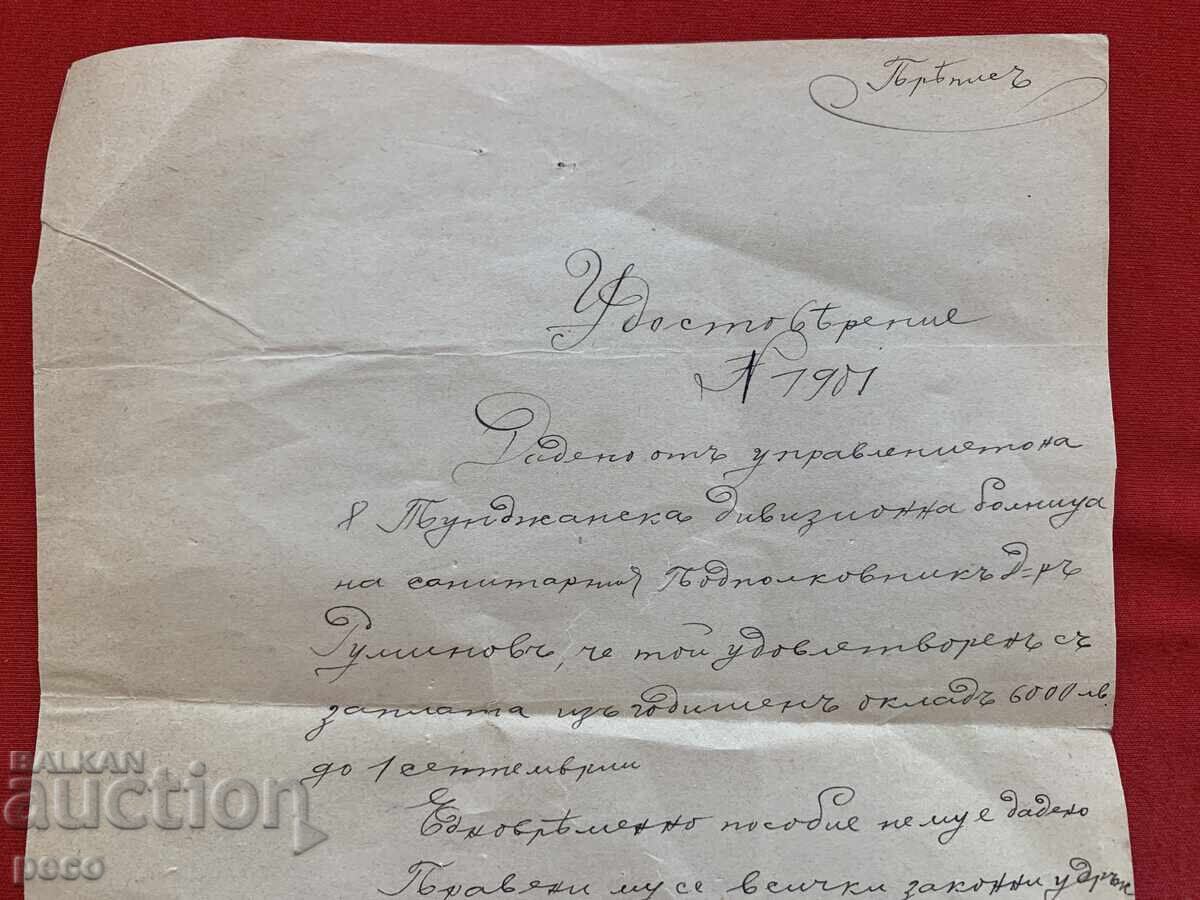 Прѣписъ
Удостовѣрение
N 1901
Дадено отъ управлението на
8 Тунджанска дивизионна болница
на санитарния Подполковникъ д-ръ
Руминовъ, че той удовлетворенъ съ
заплата изъ годишенъ окладъ 6000 лв
до 1 септемврии
Едноврѣменно пособие не му е дадено
Правени му се всички законни удръж
BALKAN
auction
peco